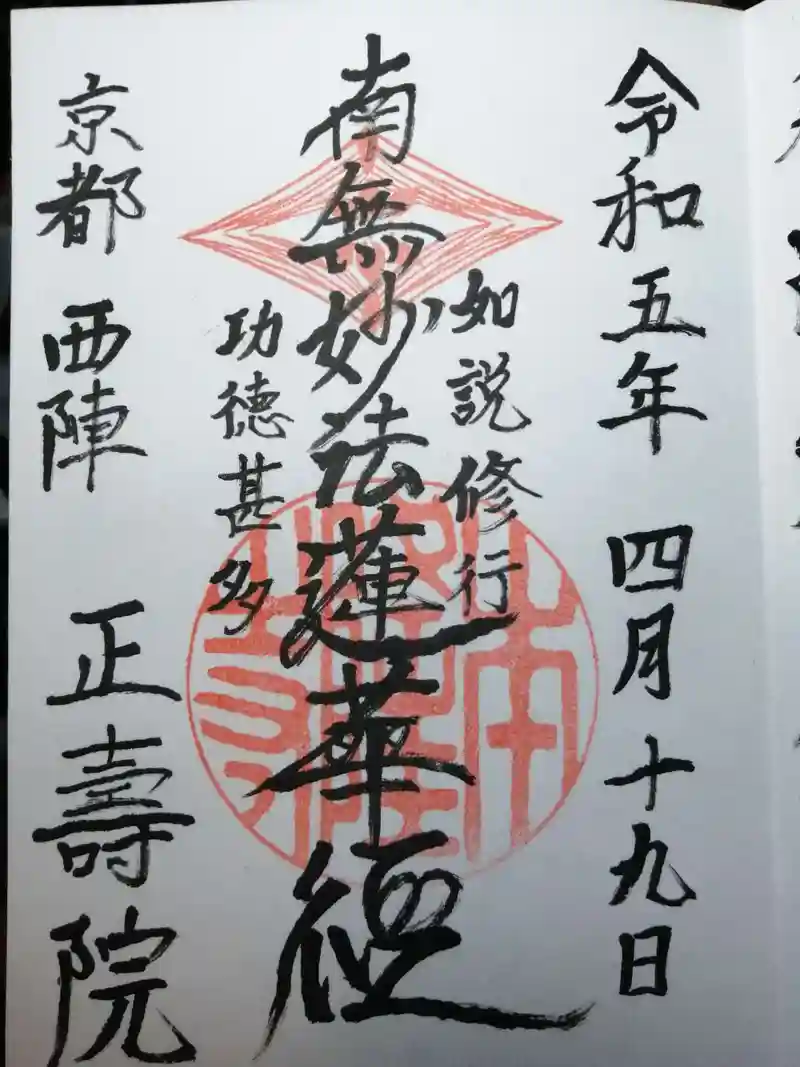 令和五年 四月十九日
如説修行
南無妙法蓮華経
功徳甚多
京都 西陣 正壽院